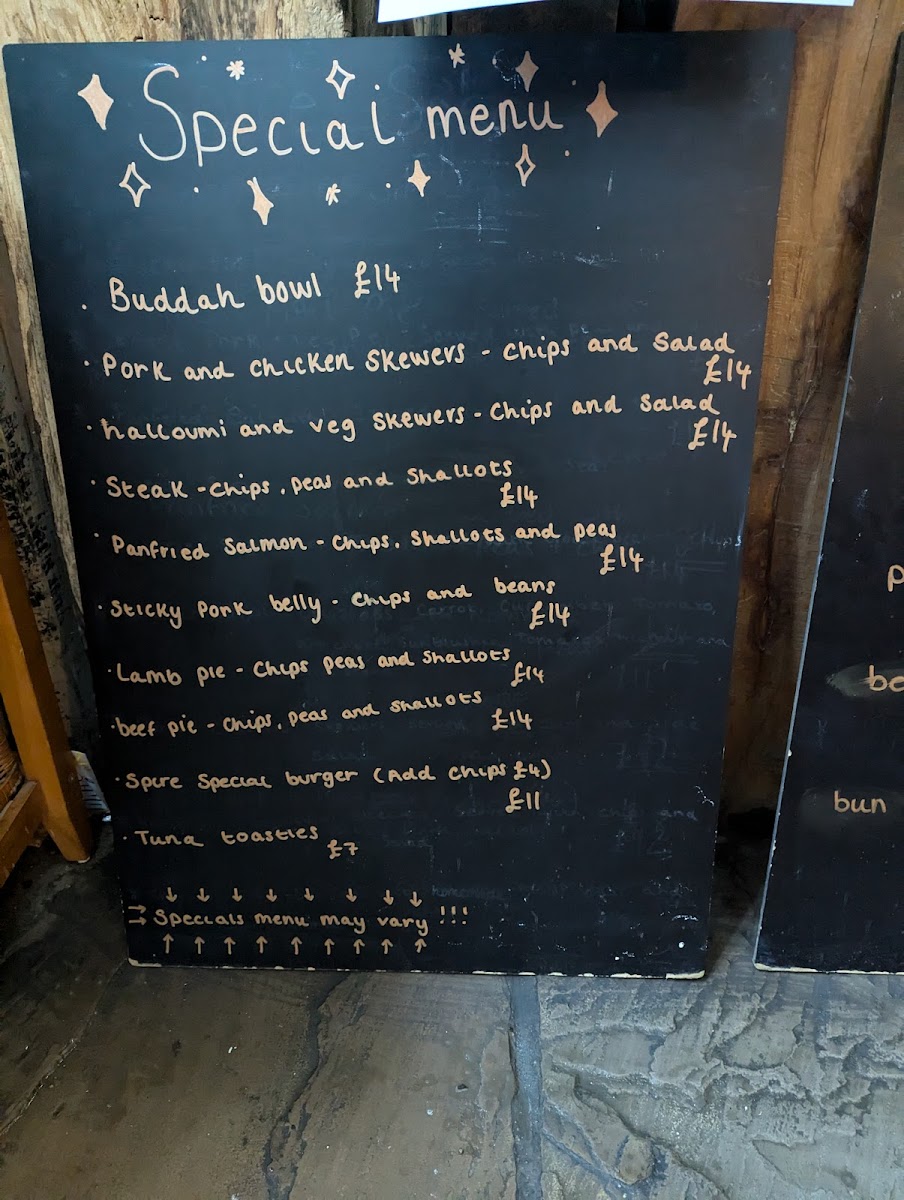 Special menu
. Buddah bowl £14
· Pork and chicken skewers - chips and salad
£14
· halloumi and veg skewers - chips and salad
£14
· Steak - chips, peas and shallots
£14
· Panfried salmon - chips, shallots and peas
£14
· Sticky pork belly - chips and beans
£14
· Lamb pie - chips peas and shallots
£14
· beef pie - chips, peas and shallots
£14
· Spire special burger (Add chips £4)
£11
· Tuna toasties
£7
↓ ↓ ↓ ↓ ↓ ↓ ↓ ↓
⇉ Specials menu may vary !!!
↑ ↑ ↑ ↑ ↑ ↑ ↑ ↑ ↑
be
bun